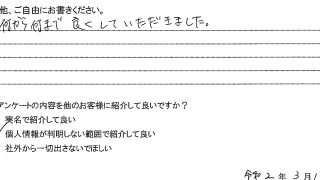 他、ご自由にお書きください。
何から何まで良くしていただきました。
アンケートの内容を他のお客様に紹介して良いですか？
実名で紹介して良い
個人情報が判明しない範囲で紹介して良い
社外から一切出さないでほしい
令和 2 年 3 月 1